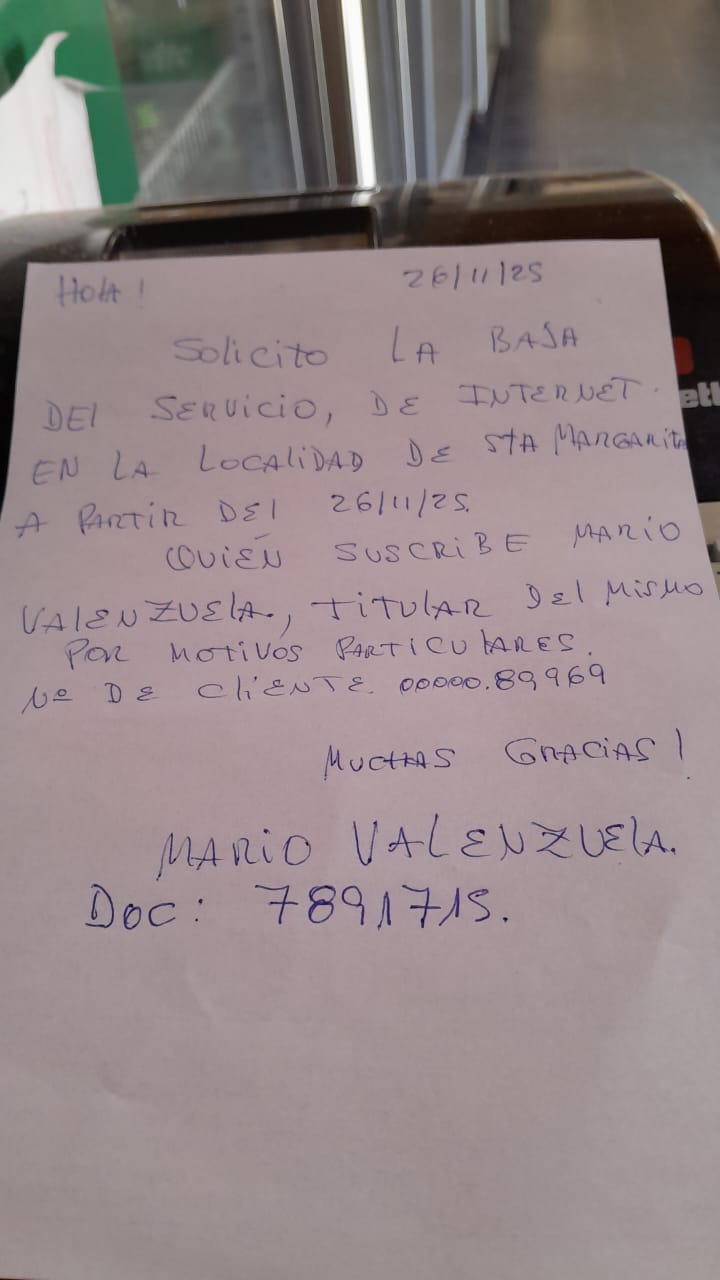 Hola! 26/11/25
Solicito LA BAJA
DEl SERVICIO, DE INTERNET.
EN LA LOCALIDAD DE STA MARGARITA
A PARTIR DEl 26/11/25.
QUIÉN SUSCRIBE MARIO
VALENZUELA., TITULAR DEl MISMO
POR MOTIVOS PARTICULARES.
Nº DE CLIENTE. 00000.89969
MUCHAS GRACIAS!
MARIO VALENZUELA.
DOC: 7891715.